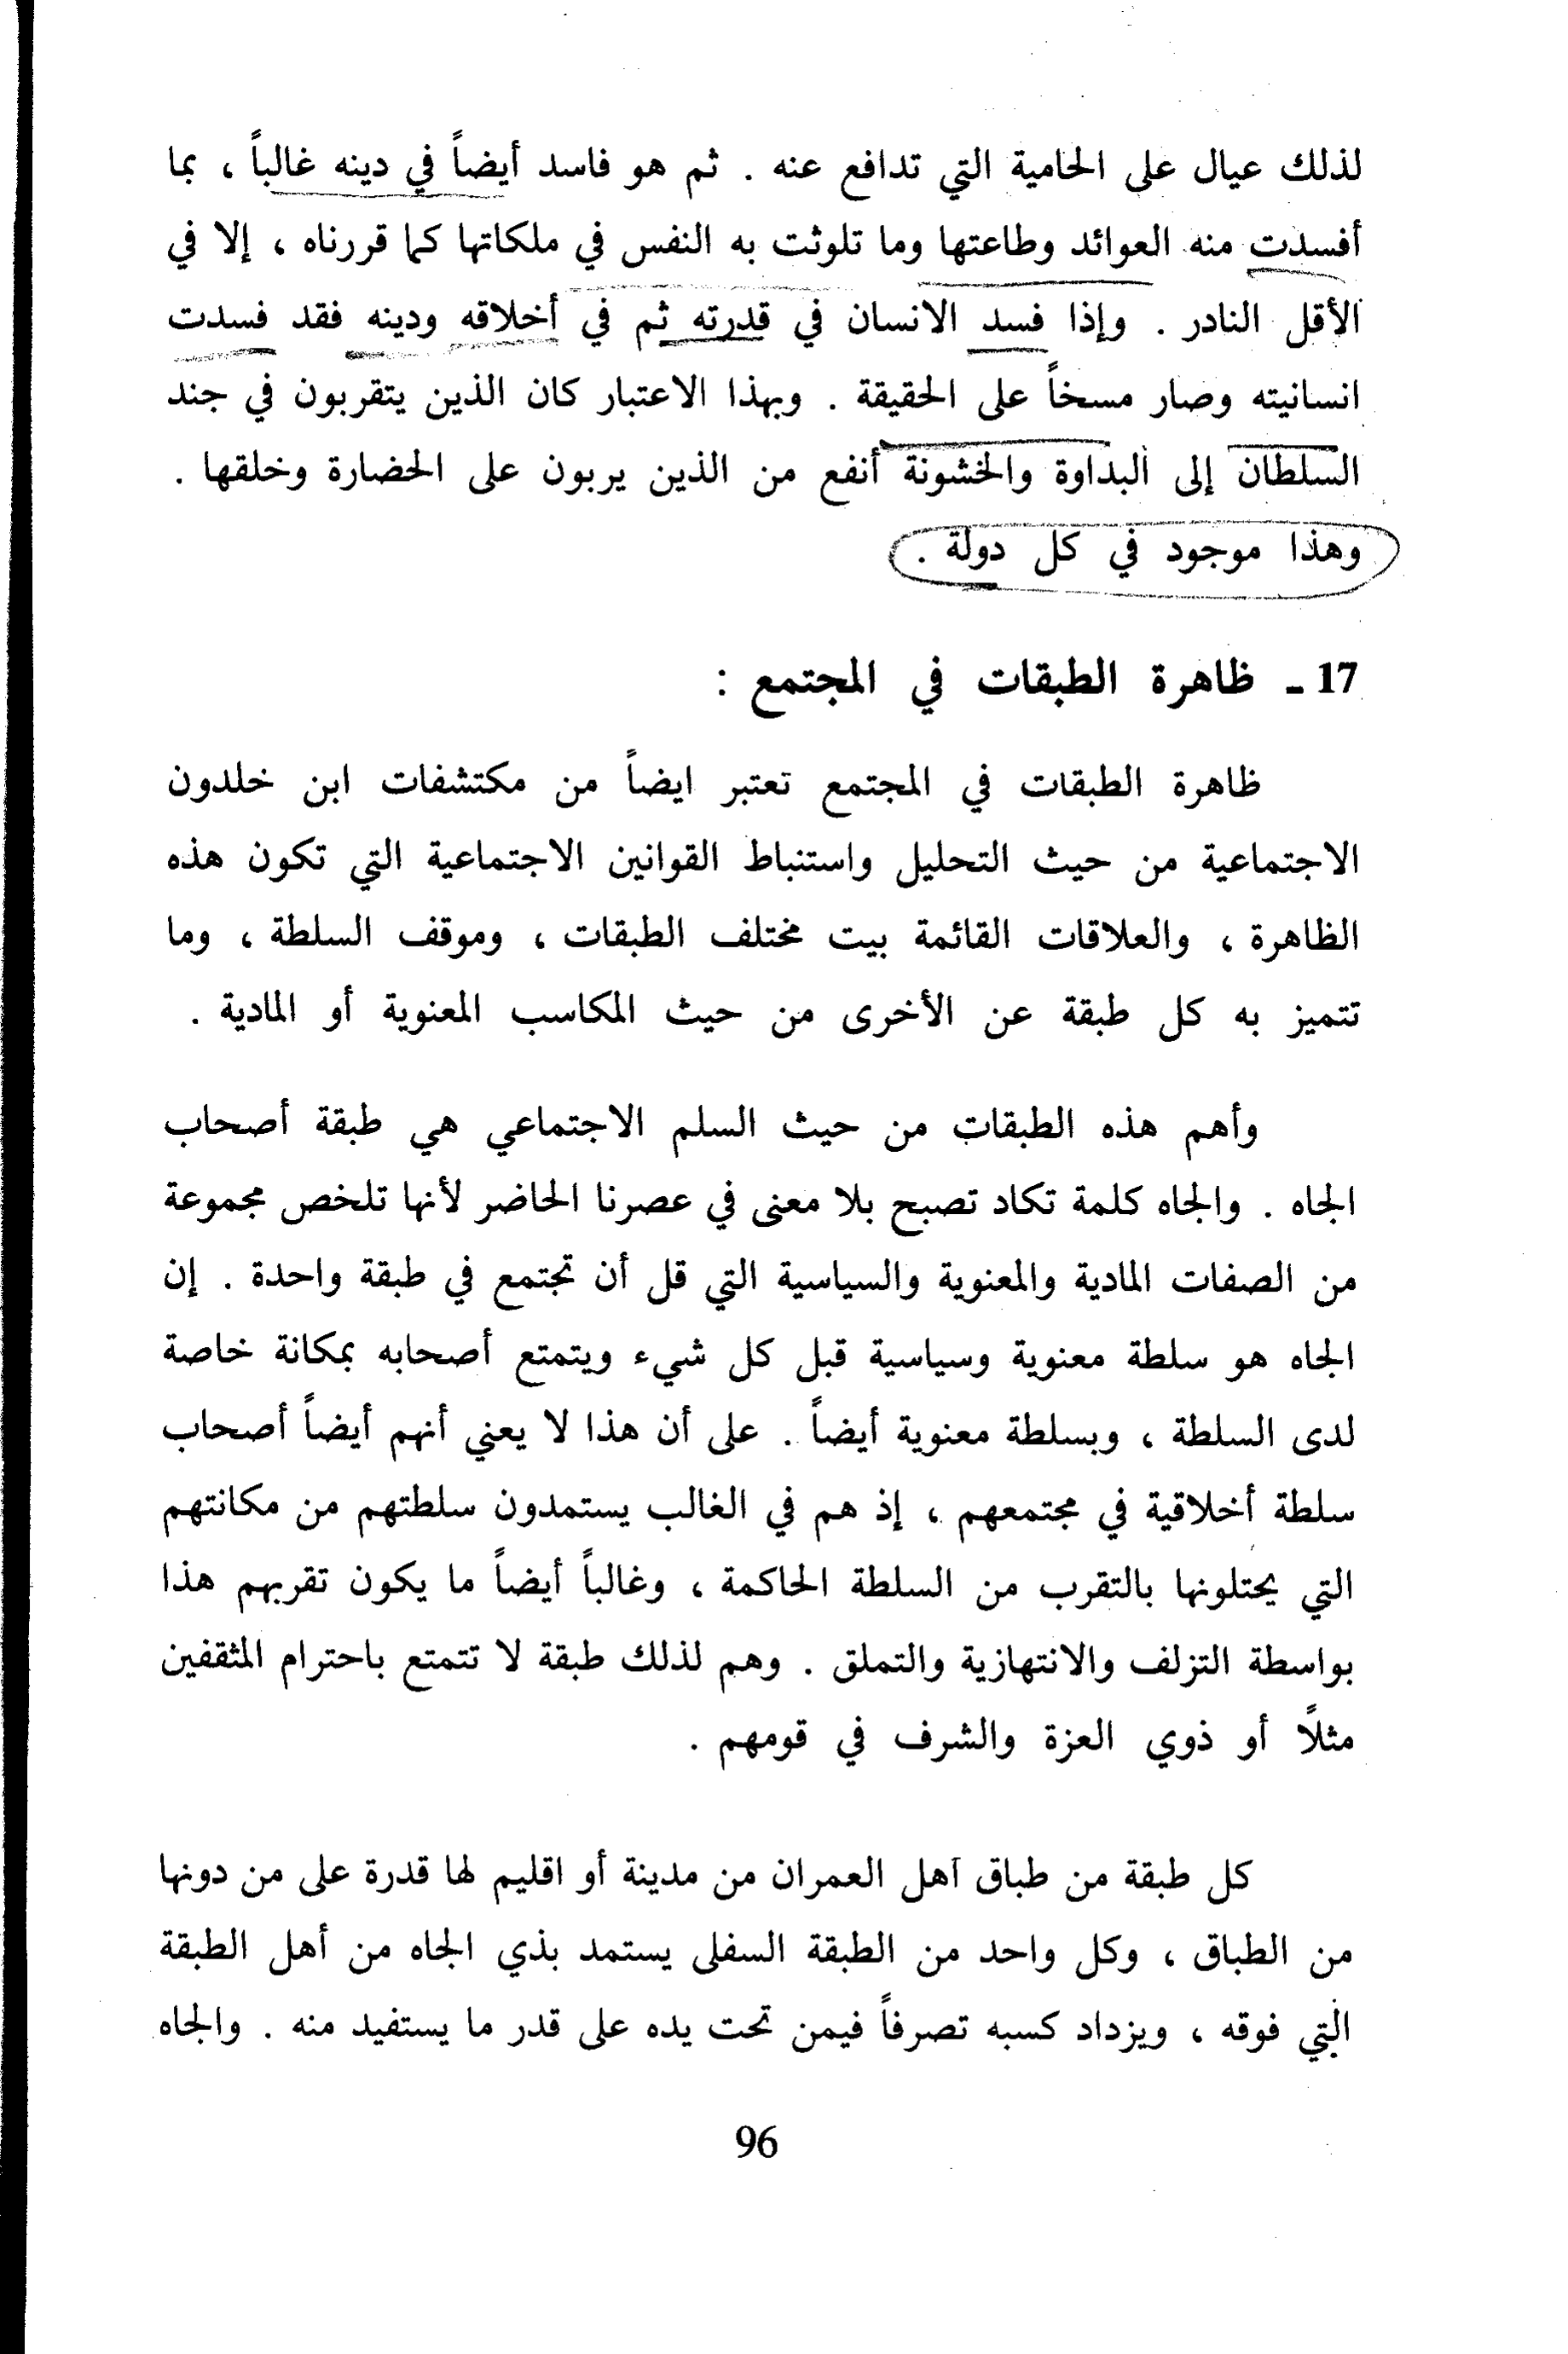 لذلك عيال على الحامية التي تدافع عنه . ثم هو فاسد أيضاً في دينه غالباً ، بما
أفسدت منه العوائد وطاعتها وما تلوثت به النفس في ملكاتها كما قررناه ، إلا في
الأقل النادر . وإذا فسد الانسان في قدرته ثم في أخلاقه ودينه فقد فسدت
انسانيته وصار مسخاً على الحقيقة . وبهذا الاعتبار كان الذين يتقربون في جند
السلطان إلى البداوة والخشونة أنفع من الذين يربون على الحضارة وخلقها .
وهذا موجود في كل دولة .
17 ـ ظاهرة الطبقات في المجتمع :
ظاهرة الطبقات في المجتمع تعتبر ايضاً من مكتشفات ابن خلدون
الاجتماعية من حيث التحليل واستنباط القوانين الاجتماعية التي تكون هذه
الظاهرة ، والعلاقات القائمة بيت مختلف الطبقات ، وموقف السلطة ، وما
تتميز به كل طبقة عن الأخرى من حيث المكاسب المعنوية أو المادية .
وأهم هذه الطبقات من حيث السلم الاجتماعي هي طبقة أصحاب
الجاه . والجاه كلمة تكاد تصبح بلا معنى في عصرنا الحاضر لأنها تلخص مجموعة
من الصفات المادية والمعنوية والسياسية التي قل أن تجتمع في طبقة واحدة . إن
الجاه هو سلطة معنوية وسياسية قبل كل شيء ويتمتع أصحابه بمكانة خاصة
لدى السلطة ، وبسلطة معنوية أيضاً . على أن هذا لا يعني أنهم أيضاً أصحاب
سلطة أخلاقية في مجتمعهم ، إذ هم في الغالب يستمدون سلطتهم من مكانتهم
التي يحتلونها بالتقرب من السلطة الحاكمة ، وغالباً أيضاً ما يكون تقربهم هذا
بواسطة التزلف والانتهازية والتملق . وهم لذلك طبقة لا تتمتع باحترام المثقفين
مثلًا أو ذوي العزة والشرف في قومهم .
كل طبقة من طباق أهل العمران من مدينة أو اقليم لها قدرة على من دونها
من الطباق ، وكل واحد من الطبقة السفلى يستمد بذي الجاه من أهل الطبقة
التي فوقه ، ويزداد كسبه تصرفاً فيمن تحت يده على قدر ما يستفيد منه . والجاه
96